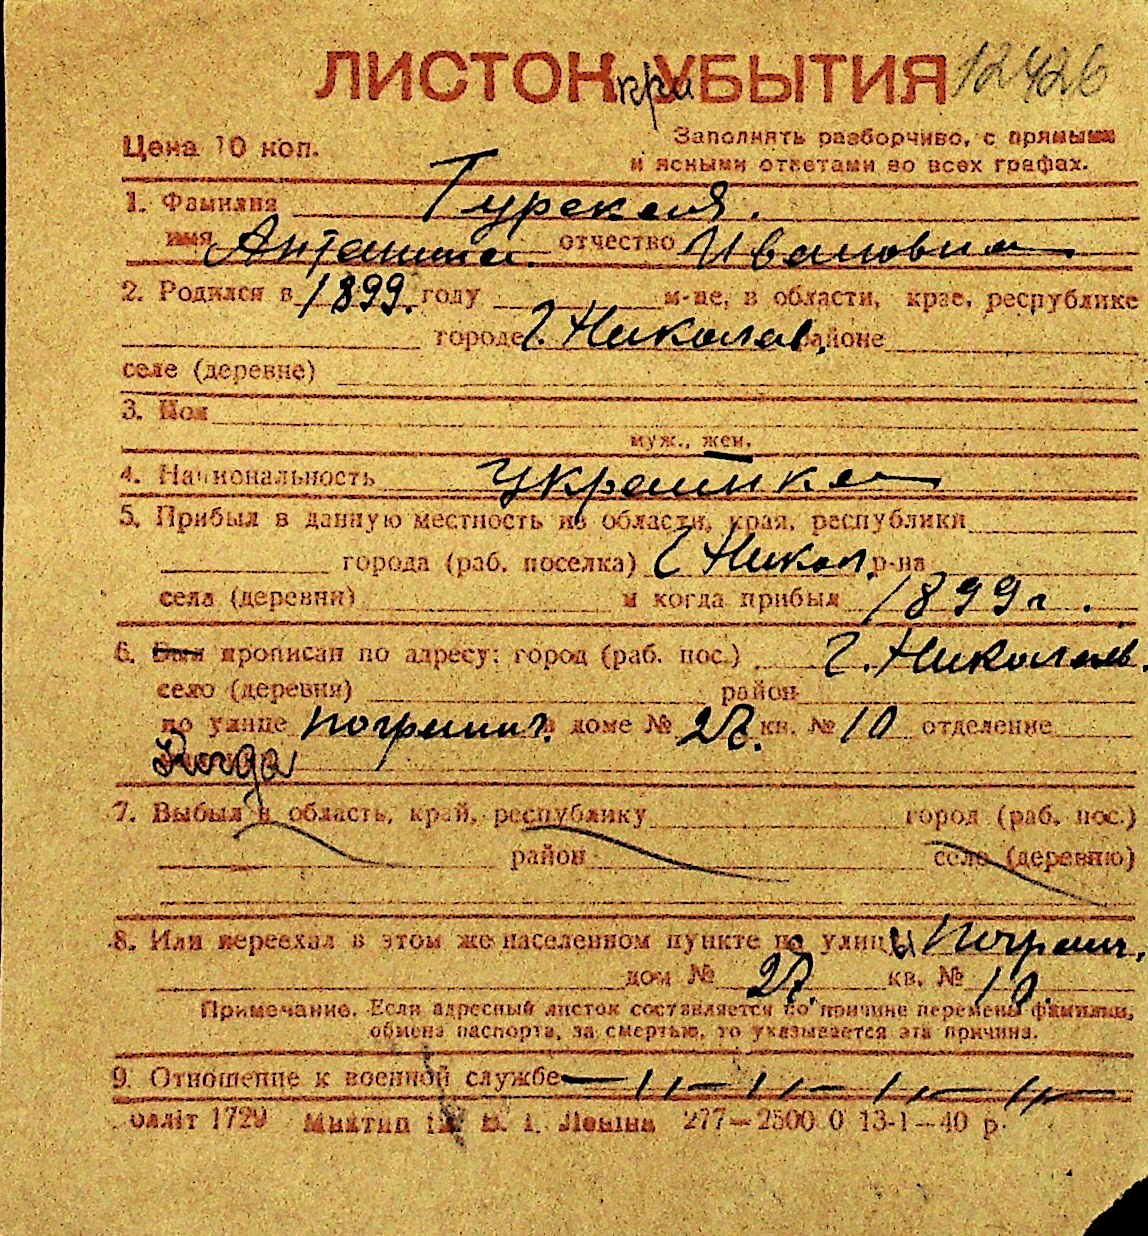 ЛИСТОК при УБЫТИЯ 12426
Цена 10 коп.
Заполнять разборчиво, с прямыми
и ясными ответами во всех графах.
1. Фамилия Турская.
имя Антонина. отчество Ивановна.
2. Родился в 1899. году м-це, в области, крае, республике
городе г. Николаев. районе
селе (деревне)
3. Пол
муж., жен.
4. Национальность украинка
5. Прибыл в данную местность из области, края, республики
города (раб. поселка) г. Никол. р-на
села (деревни) и когда прибыл 1899 г.
6. Был прописан по адресу: город (раб. пос.) г. Николаев.
село (деревня) район
по улице Погранич. в доме № кв. № 10 отделение
7. Выбыл в область, край, республику город (раб. пос.)
район село (деревню)
8. Или переехал в этом же населенном пункте по улицы Погранич.
дом № кв. № 10.
Примечание. Если адресный листок составляется по причине перемены фамилии,
обмена паспорта, за смертью, то указывается эта причина.
9. Отношение к военной службе — 〃 — 〃 — 〃 — 〃 —
оллiт 1729 Миктип iм. В. I. Ленiна 277—2500 0 13-1—40 р.